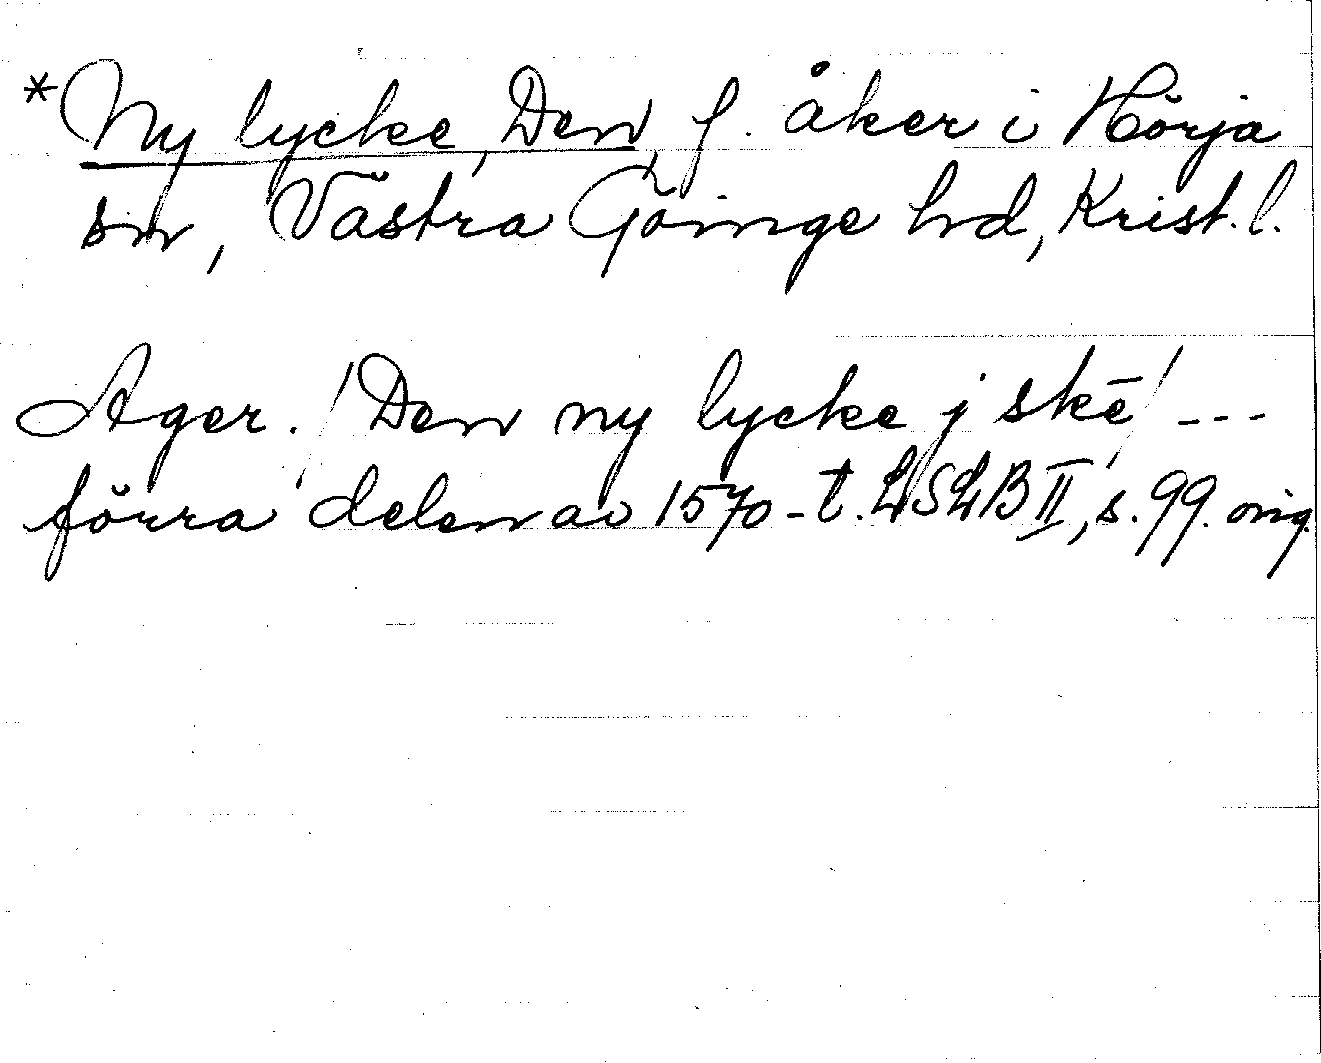 *Ny lycke, Den, f. åker i Hörja
sn, Västra Göinge hd, Krist. l.
Ager. / Den ny lycke j skē / ---
förra delen av 1570-t. LSLB II, s. 99. orig.